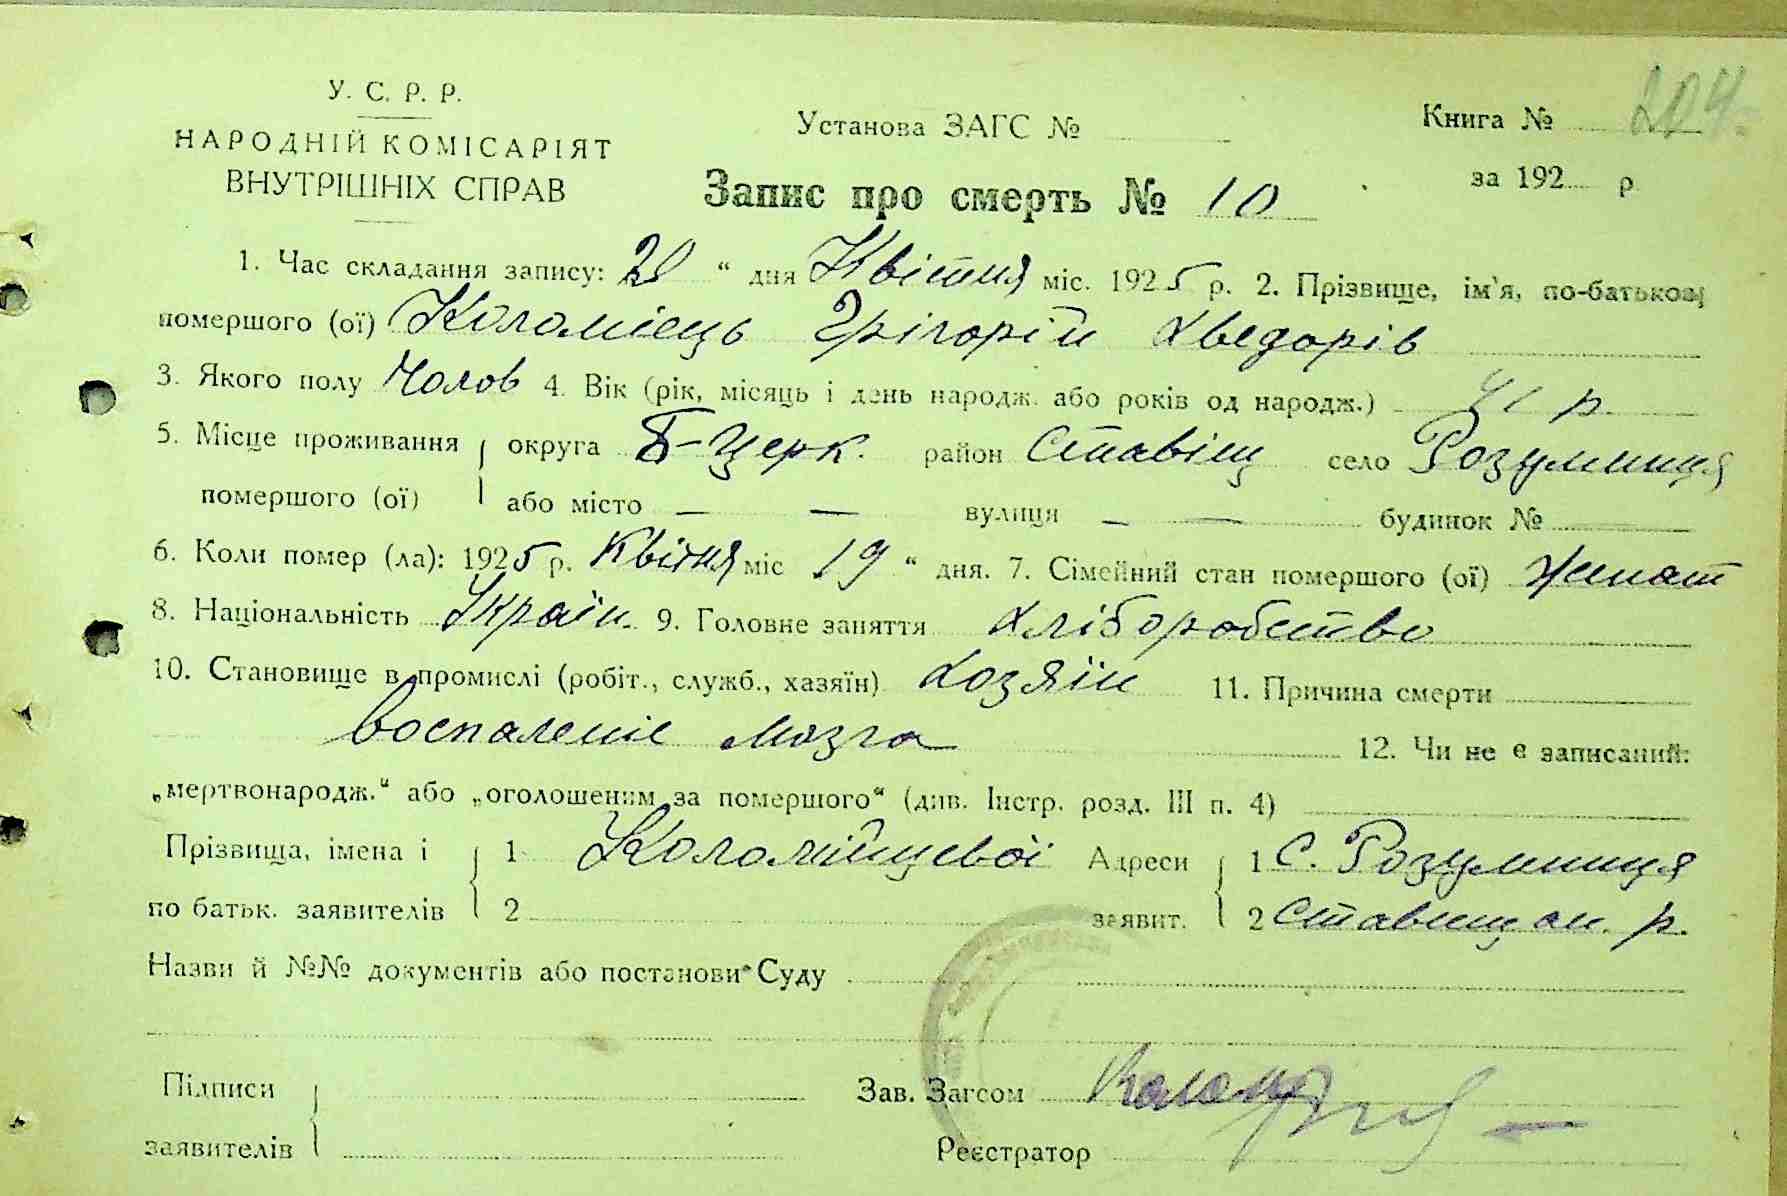 204
У. С. Р. Р.
НАРОДНІЙ КОМІСАРІЯТ
ВНУТРІШНІХ СПРАВ
Установа ЗАГС №
Книга №
за 192 р
Запис про смерть № 10
1. Час складання запису: 20 " дня Квітня міс. 1925 р. 2. Прізвище, ім'я, по-батькові
помершого (ої) Коломієць Грігорій Хведорів
3. Якого полу Чолов 4. Вік (рік, місяць і день народж. або років од народж.) 41 р.
5. Місце проживання помершого (ої) округа Б-Церк. район Ставіщ село Розумниця
або місто — — вулиця — — будинок №
6. Коли помер (ла): 1925 р. Квітня міс 19 " дня. 7. Сімейний стан помершого (ої) женат
8. Національність Україн. 9. Головне заняття Хліборобство
10. Становище в промислі (робіт., служб., хазяїн) Хозяїн 11. Причина смерти
Воспаленіє мозга 12. Чи не є записаний:
„мертвонародж." або „оголошеним за помершого" (див. Інстр. розд. III п. 4)
Прізвища, імена і по батьк. заявителів 1 Коломійцевої Адреси заявит. 1 С. Розумниця
2 2 Ставищан. р.
Назви й №№ документів або постанови Суду
Підписи заявителів
Зав. Загсом
Реєстратор